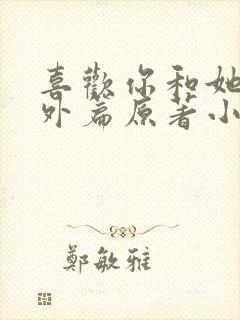 喜歡你和她
外篇原著小
鄭敏雅